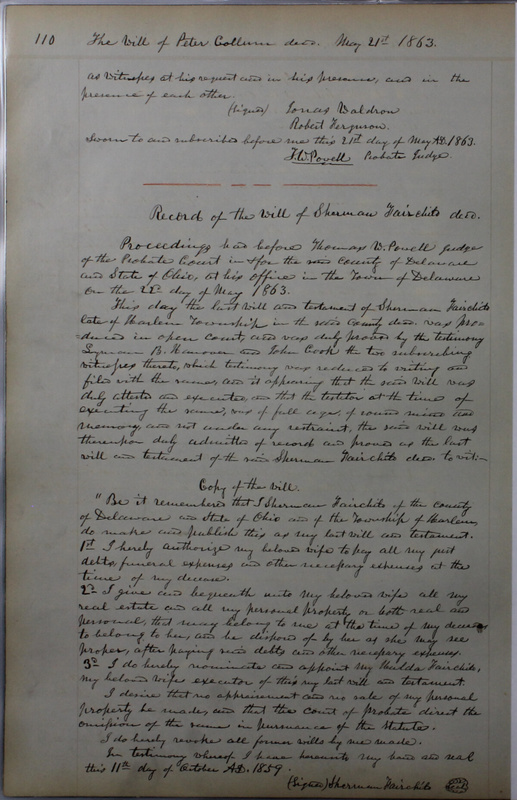 110 The Will of Peter Collum decd. May 21st 1863.
as witnesses at his request and in his presence, and in the
presence of each other.
(signed) Jonas Waldron
Robert Ferguson.
Sworn to and subscribed before me this 21st day of May A.D. 1863.
T. W. Powell Probate Judge.
Record of the Will of Sherman Fairchild decd.
Proceedings had before Thomas W. Powell Judge
of the Probate Court in & for the said County of Delaware
and State of Ohio, at his office in the Town of Delaware
on the 22d day of May 1863.
This day the last will and testament of Sherman Fairchild
late of Harlem Township in the said County decd. was pro-
duced in open Court, and was duly proved by the testimony
Lyman B. Hanover and John Cook the two subscribing
witnesses thereto, which testimony was reduced to writing and
filed with the same, and it appearing that the said Will was
duly attested and executed, and that the testator at the time of
executing the same, was of full age, of sound mind and
memory, and not under any restraint, the said will was
thereupon duly admitted of record and proved as the last
will and testament of the said Sherman Fairchild decd. to wit:-
Copy of the will.
"Be it remembered that I Sherman Fairchild of the county
of Delaware and State of Ohio and of the Township of Harlem,
do make and publish this as my last will and testament.
1st I hereby authorize my beloved wife to pay all my just
debts, funeral expenses and other necessary expenses at the
time of my decease.
2d I give and bequeath unto my beloved wife all my
real estate and all my personal property or both real and
personal, that may belong to me at the time of my decease
to belong to her, and be disposed of by her as she may see
proper, after paying said debts and other necessary expenses.
3d I do hereby nominate and appoint my Fairchild,
my beloved wife executor of this my last will and testament.
I desire that no appraisement and no sale of my personal
property be made, and that the Court of Probate direct the
omission of the same in pursuance of the statute.
I do hereby revoke all former wills by me made.
In testimony whereof I have hereunto my hand and seal
this 11th day of October A.D. 1859.
(signed) Sherman Fairchild seal